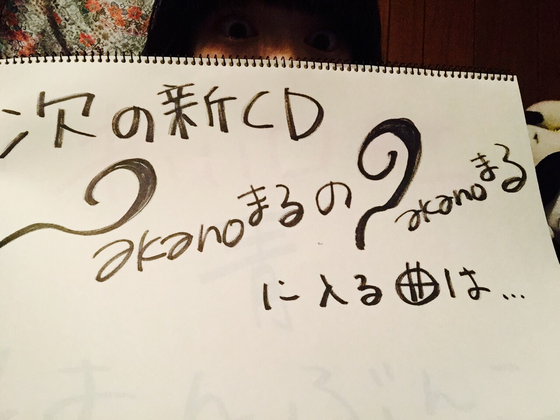 次の新CD
?akanoまるの?akanoまる
に入る曲は...